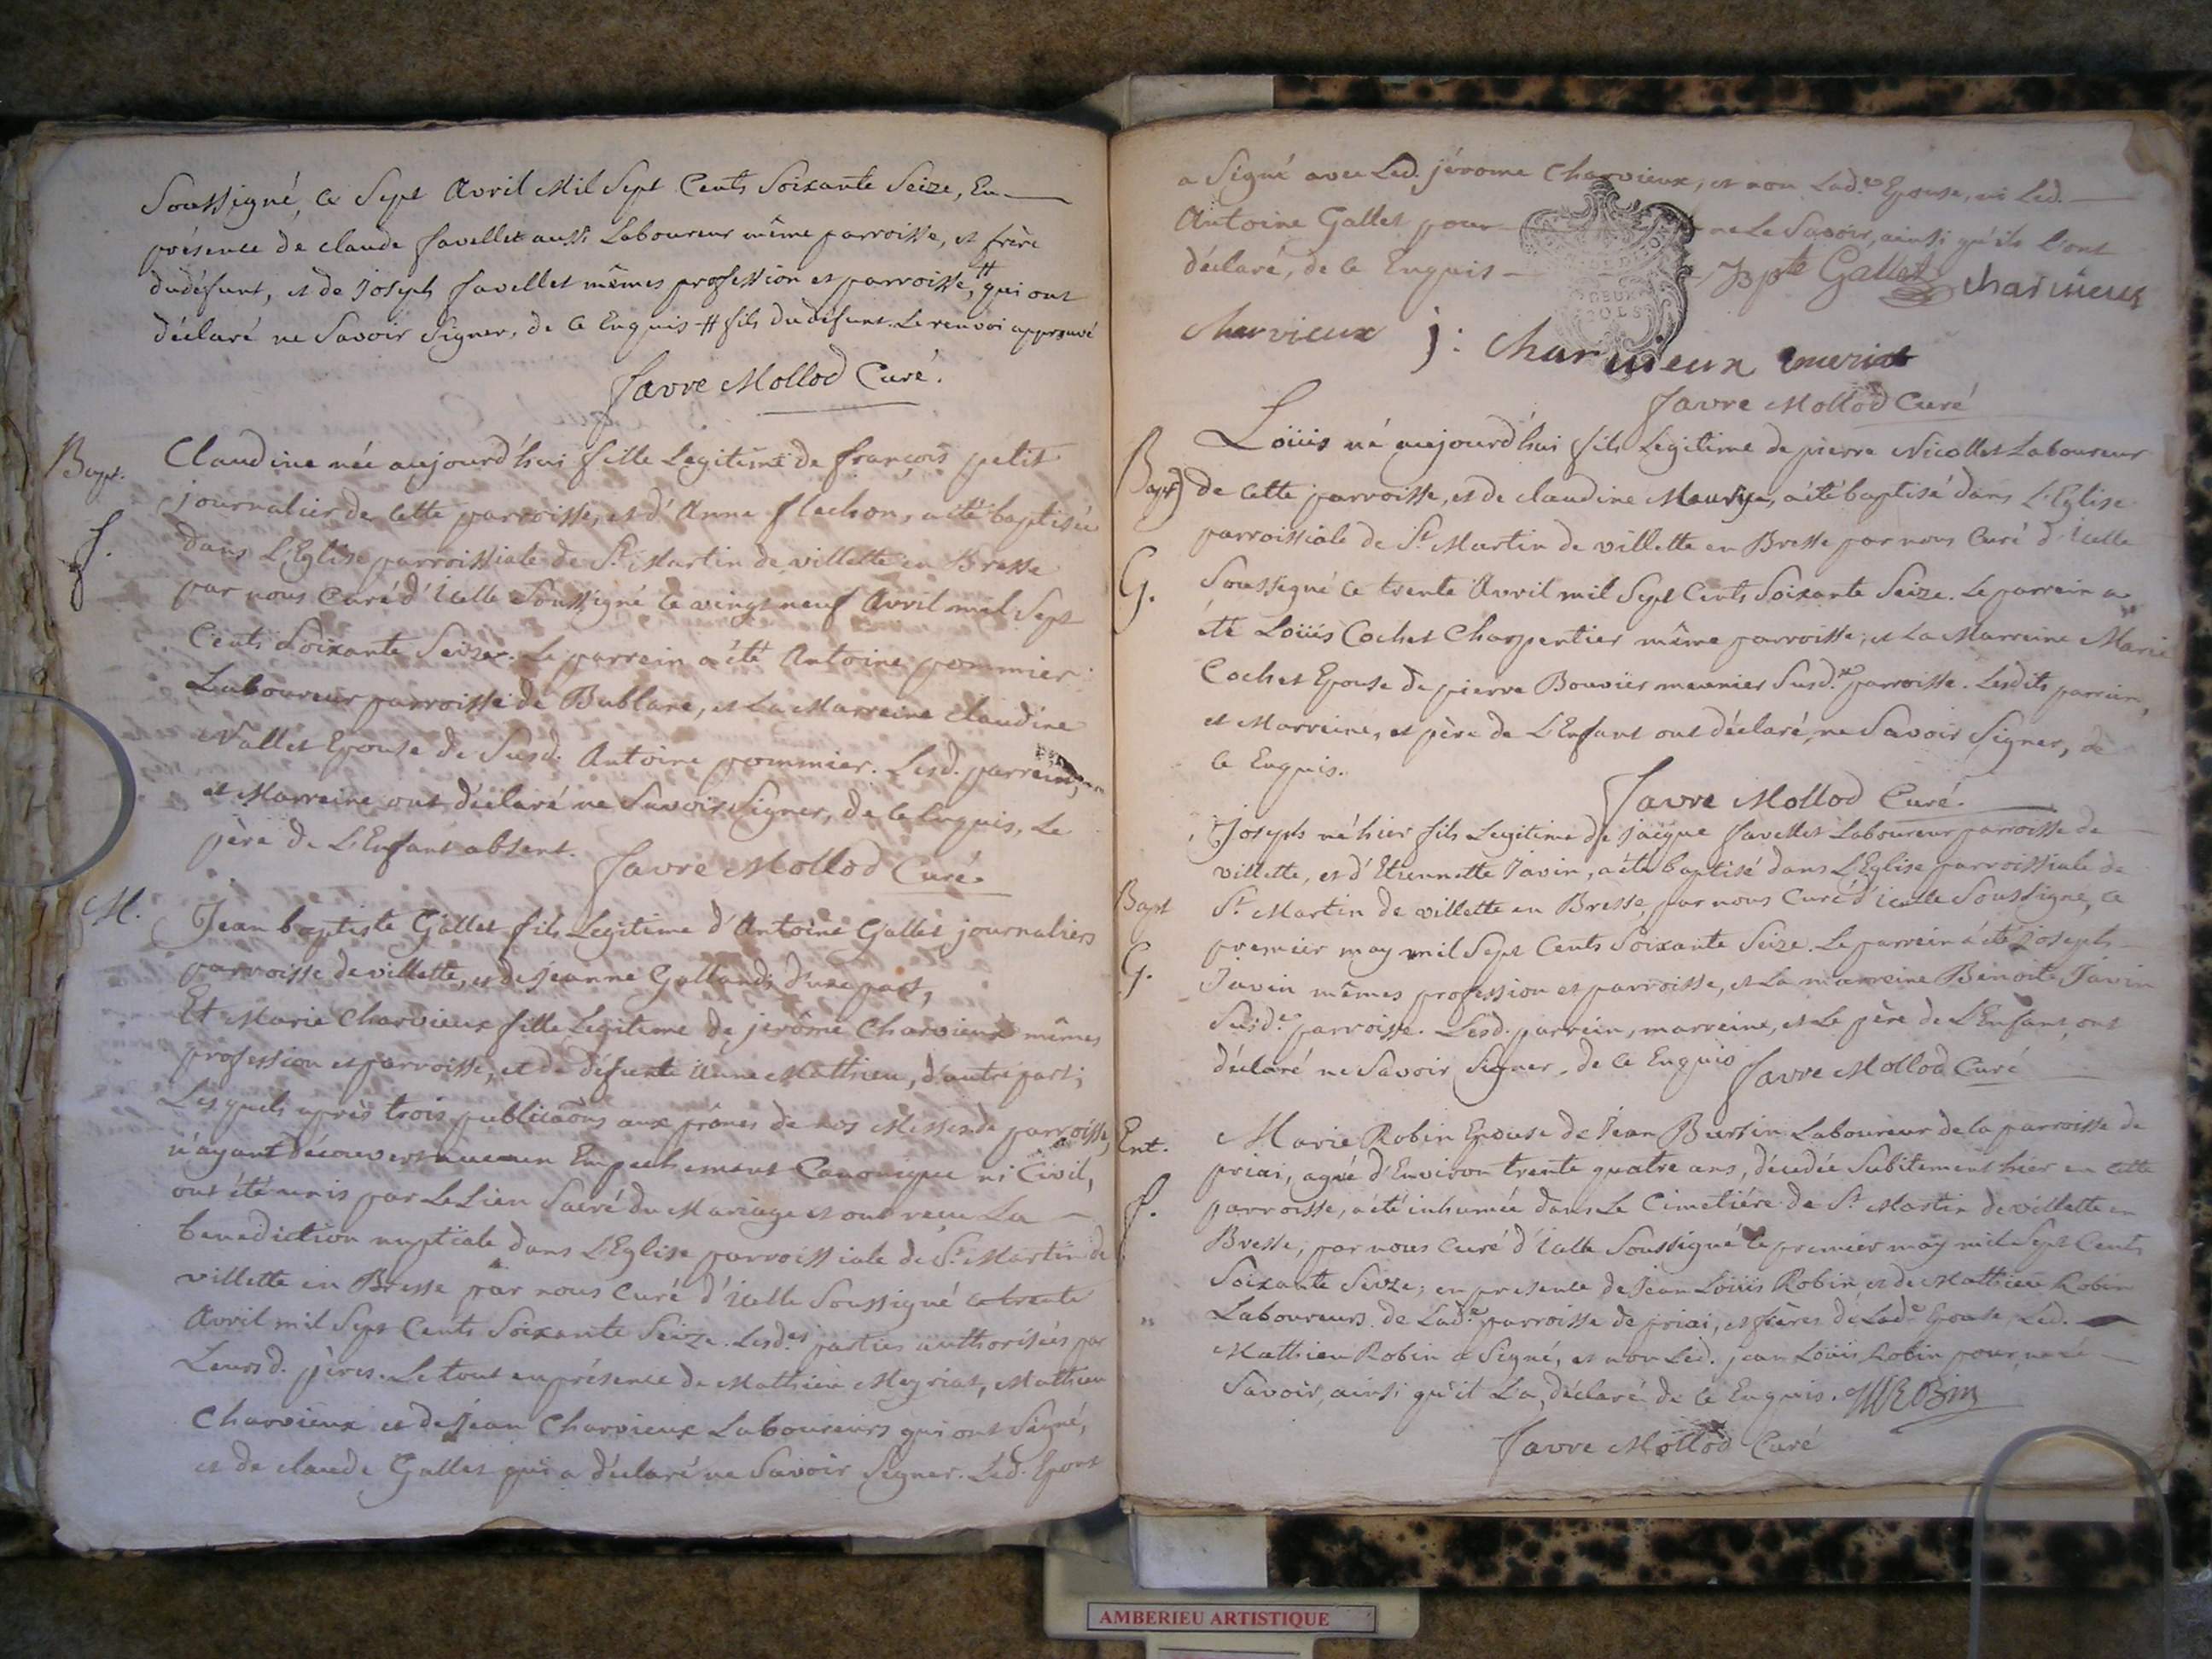 Soussigné, ce Sept Avril Mil Sept Cents Soixante Seize, En
présence de claude favellet aussi Laboureur même parroisse, et frère
dudéfunt, et de Joseph favellet mêmes profession et parroisse, # qui ont
déclaré ne Savoir Signer, de ce Enquis # fils dudéfunt. Le renvoi approuvé
favre Mollod Curé.
Bapt.
f.
Claudine née aujourd'hui fille Legitime de françois petit
journalier de cette parroisse, et d'Anne flechon, a été baptisée
dans L'Eglise parroissiale de St. Martin de villette en Bresse
par nous Curé d'icelle Soussigné le vingt neuf Avril mil Sept
Cents Soixante Seize. Le parrein a été Antoine pommier
Laboureur parroisse de Bublane, et La Marreine claudine
Vallet Epouse de Susd. Antoine pommier. Lesd. parrein,
et Marreine ont déclaré ne Savoir Signer, de ce Enquis, Le
père de L'Enfant absent.
favre Mollod Curé.
M.
Jean baptiste Gallet fils Legitime d'Antoine Gallet journaliers
parroisse de villette, et de Jeanne Galland, d'une part,
Et Marie Charvieux fille Legitime de jerôme Charvieux mêmes
profession et parroisse, et de défunte Anne Mathieu, d'autre part;
Lesquels après trois publicaons aux prônes de nos Messes de parroisse,
n'ayant découvert aucun Empechement Canonique ni Civil,
ont été unis par Le Lien Sacré du Mariage et ont reçu La
benediction nuptiale dans L'Eglise parroissiale de St. Martin de
villette en Bresse par nous Curé d'icelle Soussigné ce trente
Avril mil Sept Cents Soixante Seize. Lesd.es parties authorisées par
Leursd. pères. Le tout en présence de Mathieu Meyriat, Mathieu
Charvieux et de Jean Charvieux Laboureurs qui ont Signé,
et de claude Gallet qui a déclaré ne Savoir Signer. Led. Epoux
a Signé avec Led. jérome Charvieux, et non Lad.e Epouse, ni Led.
Antoine Gallet pour ne Le Savoir, ainsi qu'ils l'ont
déclaré, de ce Enquis
J Bpte Gallet charvieux
Charvieux j: charvieux meriat
favre Mollod Curé
Bapt
G.
Loüis né aujourd'hui fils Legitime de pierre Nicollet Laboureur
de cette parroisse, et de claudine, a été baptisé dans L'Eglise
parroissiale de St. Martin de villette en Bresse par nous Curé d'icelle
Soussigné ce trente Avril mil Sept Cents Soixante Seize. Le parrein a
été Loüis Cochet Charpentier même parroisse, et La Marreine Marie
Cochet Epouse de pierre Bouvier meunier Susd.e parroisse. Lesdits parrein,
et Marreine, et père de L'Enfant ont déclaré, ne Savoir Signer, de
ce Enquis.
favre Mollod Curé.
Bapt
G.
Joseph né hier fils Legitime de jacque favellet Laboureur parroisse de
villette, et d'Etiennette Javin, a été baptisé dans L'Eglise parroissiale de
St. Martin de villette en Bresse, par nous Curé d'icelle Soussigné, ce
premier may mil Sept Cents Soixante Seize. Le parrein a été Joseph
Javin mêmes profession et parroisse, et La marreine Benoite Javin
Susd.e parroisse. Lesd. parrein, marreine, et Le père de L'Enfant, ont
déclaré ne Savoir Signer, de ce Enquis
favre Mollod Curé
Ent.
f.
Marie Robin Epouse de Jean Bursin Laboureur de la parroisse de
priai, agée d'Environ trente quatre ans, décedée Subitement hier en cette
parroisse, a été inhumée dans Le Cimetiére de St. Martin de villette en
Bresse, par nous Curé d'icelle Soussigné le premier may mil Sept Cents
Soixante Seize; en presence de Jean Loüis Robin, et de Mathieu Robin
Laboureurs de Lad.e parroisse de priai, et frères de Lad.e Epouse, Led.
Mathieu Robin a Signé, et non Led. jean Loüis Robin pour ne Le
Savoir, ainsi qu'il L'a déclaré de ce Enquis. M RoBin
favre Mollod Curé
AMBERIEU ARTISTIQUE